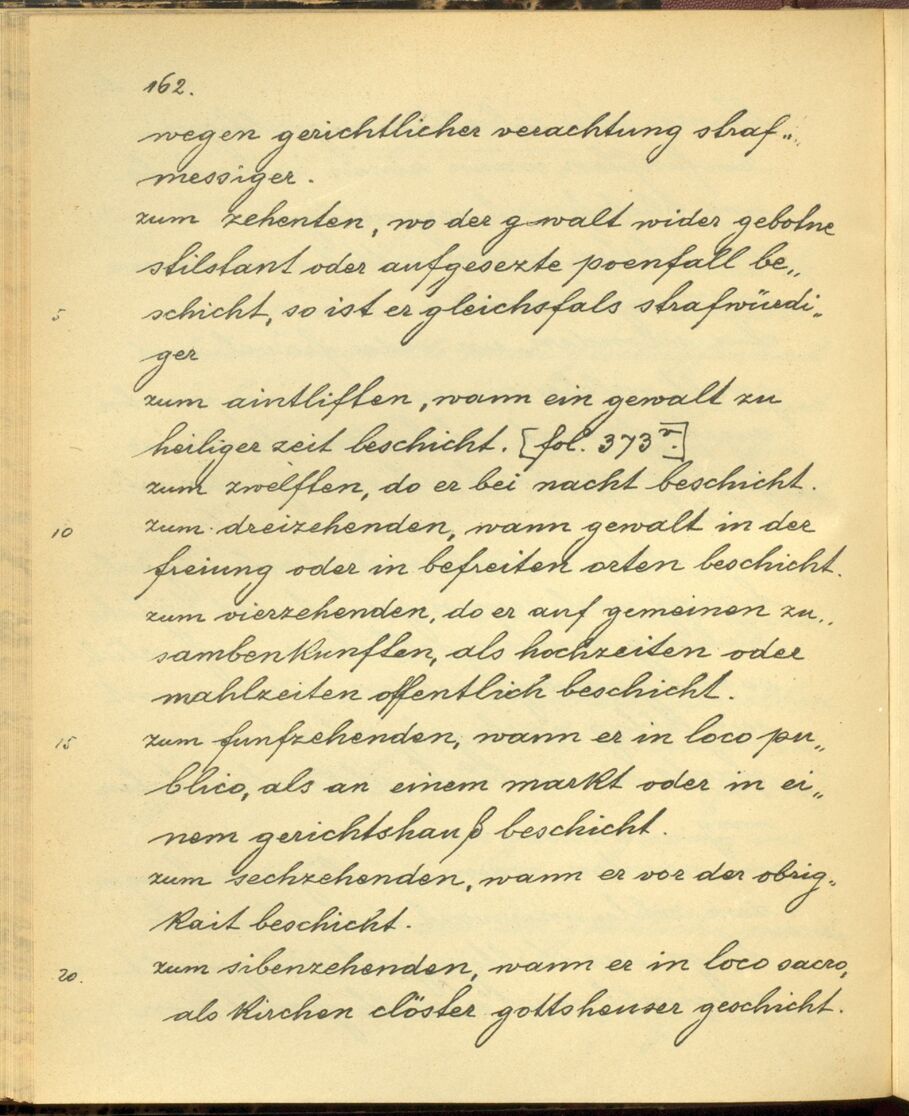 162.
wegen gerichtlicher verachtung straf„
messiger.
zum zehenten, wo der gwalt wider gebotne
stilstant oder aufgesezte poenfall be„
5 schicht, so ist er gleichsfals strafwürdi„
ger
zum aintliften, wann ein gewalt zu
heiliger zeit beschicht. [fol. 373 v.]
zum zwelften, do er bei nacht beschicht.
10 zum dreizehenden, wann gewalt in der
freiung oder in befreiten orten beschicht.
zum vierzehenden, do er auf gemeinen zu„
sambenkunften, als hochzeiten oder
mahlzeiten offentlich beschicht.
15 zum funfzehenden, wann er in loco pu„
blico, als an einem markt oder in ei„
nem gerichtshauß beschicht.
zum sechzehenden, wann er vor der obrig„
kait beschicht.
20. zum sibenzehenden, wann er in loco sacro,
als kirchen clöster gottsheuser geschicht.